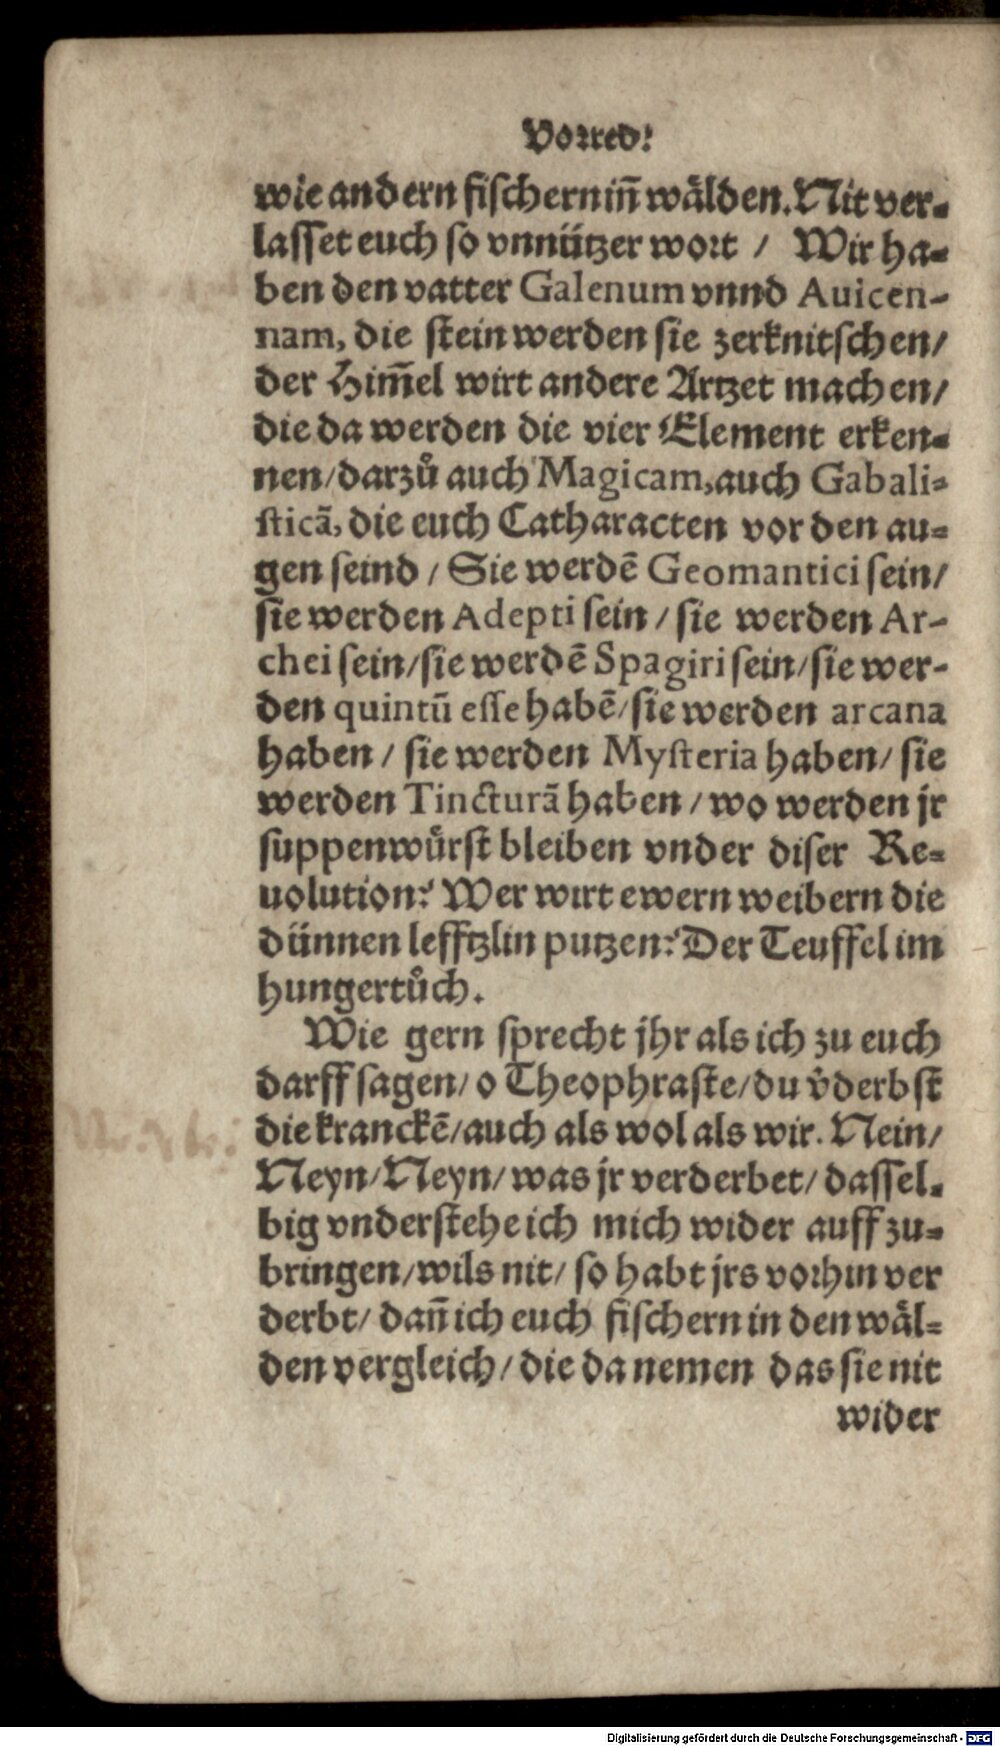 Vorred.
wie andern fischern iñ wälden. Nit ver-
lasset euch so vnnützer wort / Wir ha-
ben den vatter Galenum vnnd Auicen-
nam, die stein werden sie zerknitschen/
der Him̃el wirt andere Artzet machen/
die da werden die vier Element erken-
nen/darzů auch Magicam, auch Gabali-
sticã, die euch Catharacten vor den au-
gen seind / Sie werdẽ Geomantici sein/
sie werden Adepti sein / sie werden Ar-
chei sein/sie werdẽ Spagiri sein/sie wer-
den quintũ esse habẽ/sie werden arcana
haben / sie werden Mysteria haben/ sie
werden Tincturã haben / wo werden jr
suppenwürst bleiben vnder diser Re-
uolution? Wer wirt ewern weibern die
dünnen lefftzlin putzen? Der Teuffel im
hungertůch.
Wie gern sprecht jhr als ich zu euch
darff sagen/ o Theophraste/du v̓derbst
die kranckẽ/auch als wol als wir. Nein/
Neyn/Neyn/ was jr verderbet/ dassel-
big vnderstehe ich mich wider auff zu-
bringen/wils nit/ so habt jrs vorhin ver
derbt/ dañ ich euch fischern in den wäl-
den vergleich/ die da nemen das sie nit
wider
Digitalisierung gefördert durch die Deutsche Forschungsgemeinschaft - DFG